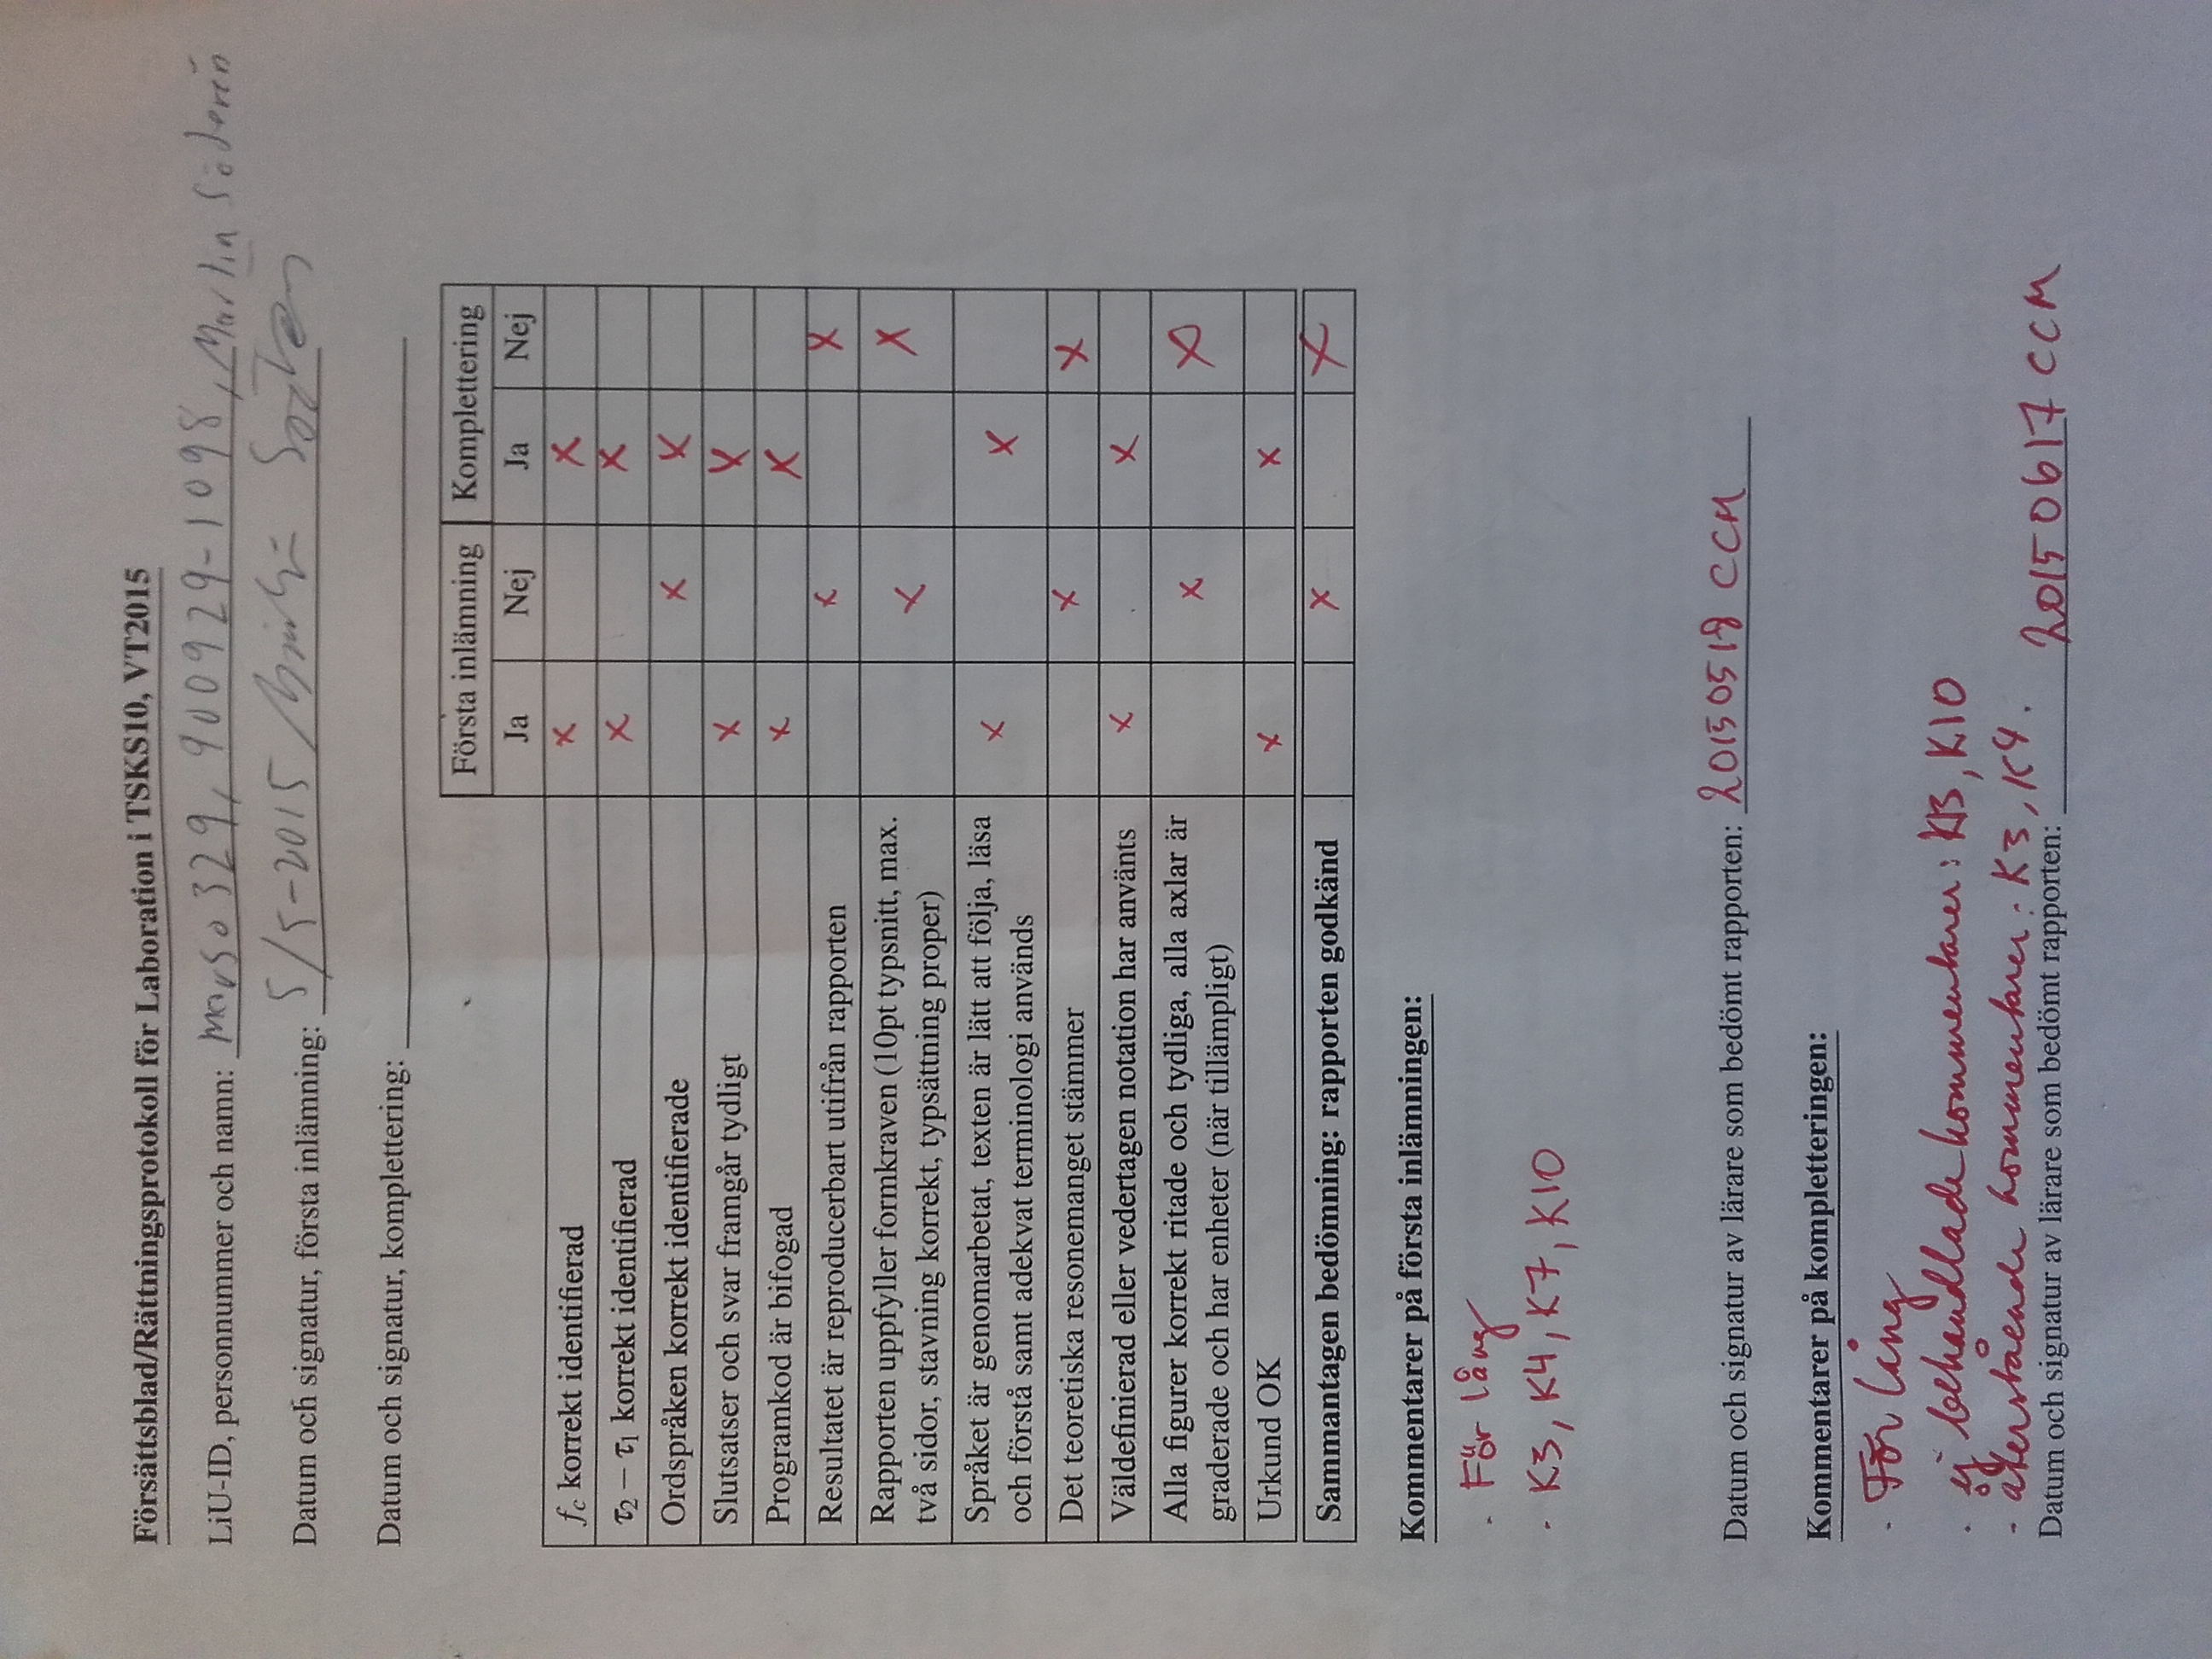 Försättsblad/Rättningsprotokoll för Laboration i TSKS10, VT2015
LiU-ID, personnummer och namn: marso329, 900929-1098, Martin Söderén
Datum och signatur, första inlämning: 5/5-2015
Datum och signatur, komplettering:
Första inlämning Komplettering
Ja Nej Ja Nej
fc korrekt identifierad x x
τ2 − τ1 korrekt identifierad x x
Ordspråken korrekt identifierade x x
Slutsatser och svar framgår tydligt x x
Programkod är bifogad x x
Resultatet är reproducerbart utifrån rapporten x x
Rapporten uppfyller formkraven (10pt typsnitt, max.
två sidor, stavning korrekt, typsättning proper) x x
Språket är genomarbetat, texten är lätt att följa, läsa
och förstå samt adekvat terminologi används x x
Det teoretiska resonemanget stämmer x x
Väldefinierad eller vedertagen notation har använts x x
Alla figurer korrekt ritade och tydliga, alla axlar är
graderade och har enheter (när tillämpligt) x x
Urkund OK x x
Sammantagen bedömning: rapporten godkänd x x
Kommentarer på första inlämningen:
- För lång
- K3, K4, K7, K10
Datum och signatur av lärare som bedömt rapporten: 20150518 CCM
Kommentarer på kompletteringen:
- För lång
- ej behandlade kommentarer: K3, K10
- återstående kommentarer: K3, K4.
Datum och signatur av lärare som bedömt rapporten: 20150617 CCM